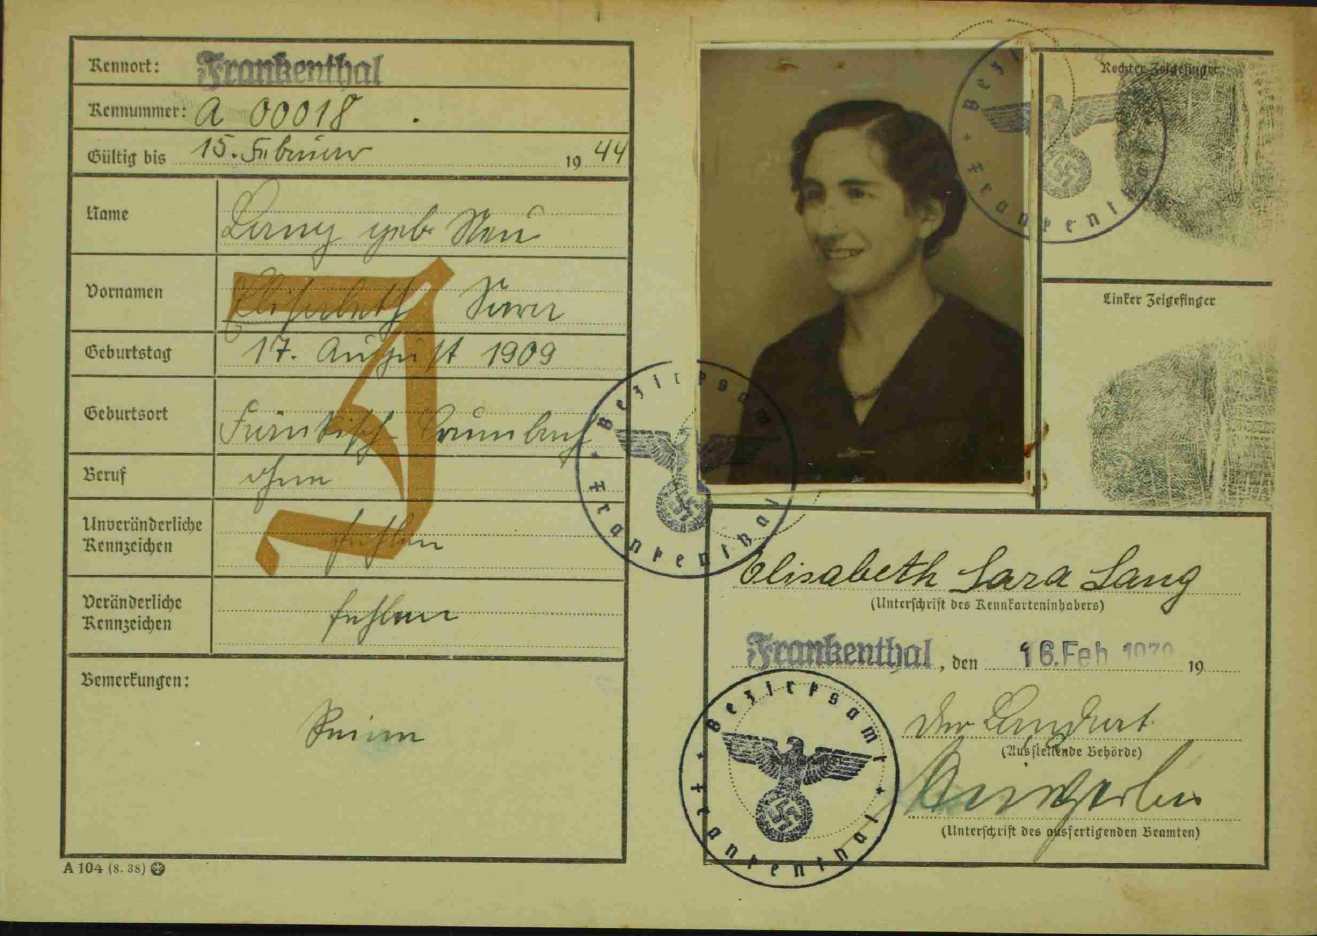 Kennort: Frankenthal
Kennummer: A 00018
Gültig bis 15. Februar 1944
Name Lang geb. Neu
Vornamen Elisabeth Sara
Geburtstag 17. August 1909
Geburtsort Fränkisch-Crumbach
Beruf ohne
Unveränderliche Kennzeichen fehlen
Veränderliche Kennzeichen fehlen
Bemerkungen:
Keine
A 104 (8. 38)
J
Bezirksamt Frankenthal
Rechter Zeigefinger
Linker Zeigefinger
Bezirksamt Frankenthal
Elisabeth Sara Lang
(Unterschrift des Kennkarteninhabers)
Frankenthal, den 16. Feb. 1939 19
Der Landrat
(Ausstellende Behörde)
(Unterschrift des ausfertigenden Beamten)
Bezirksamt Frankenthal